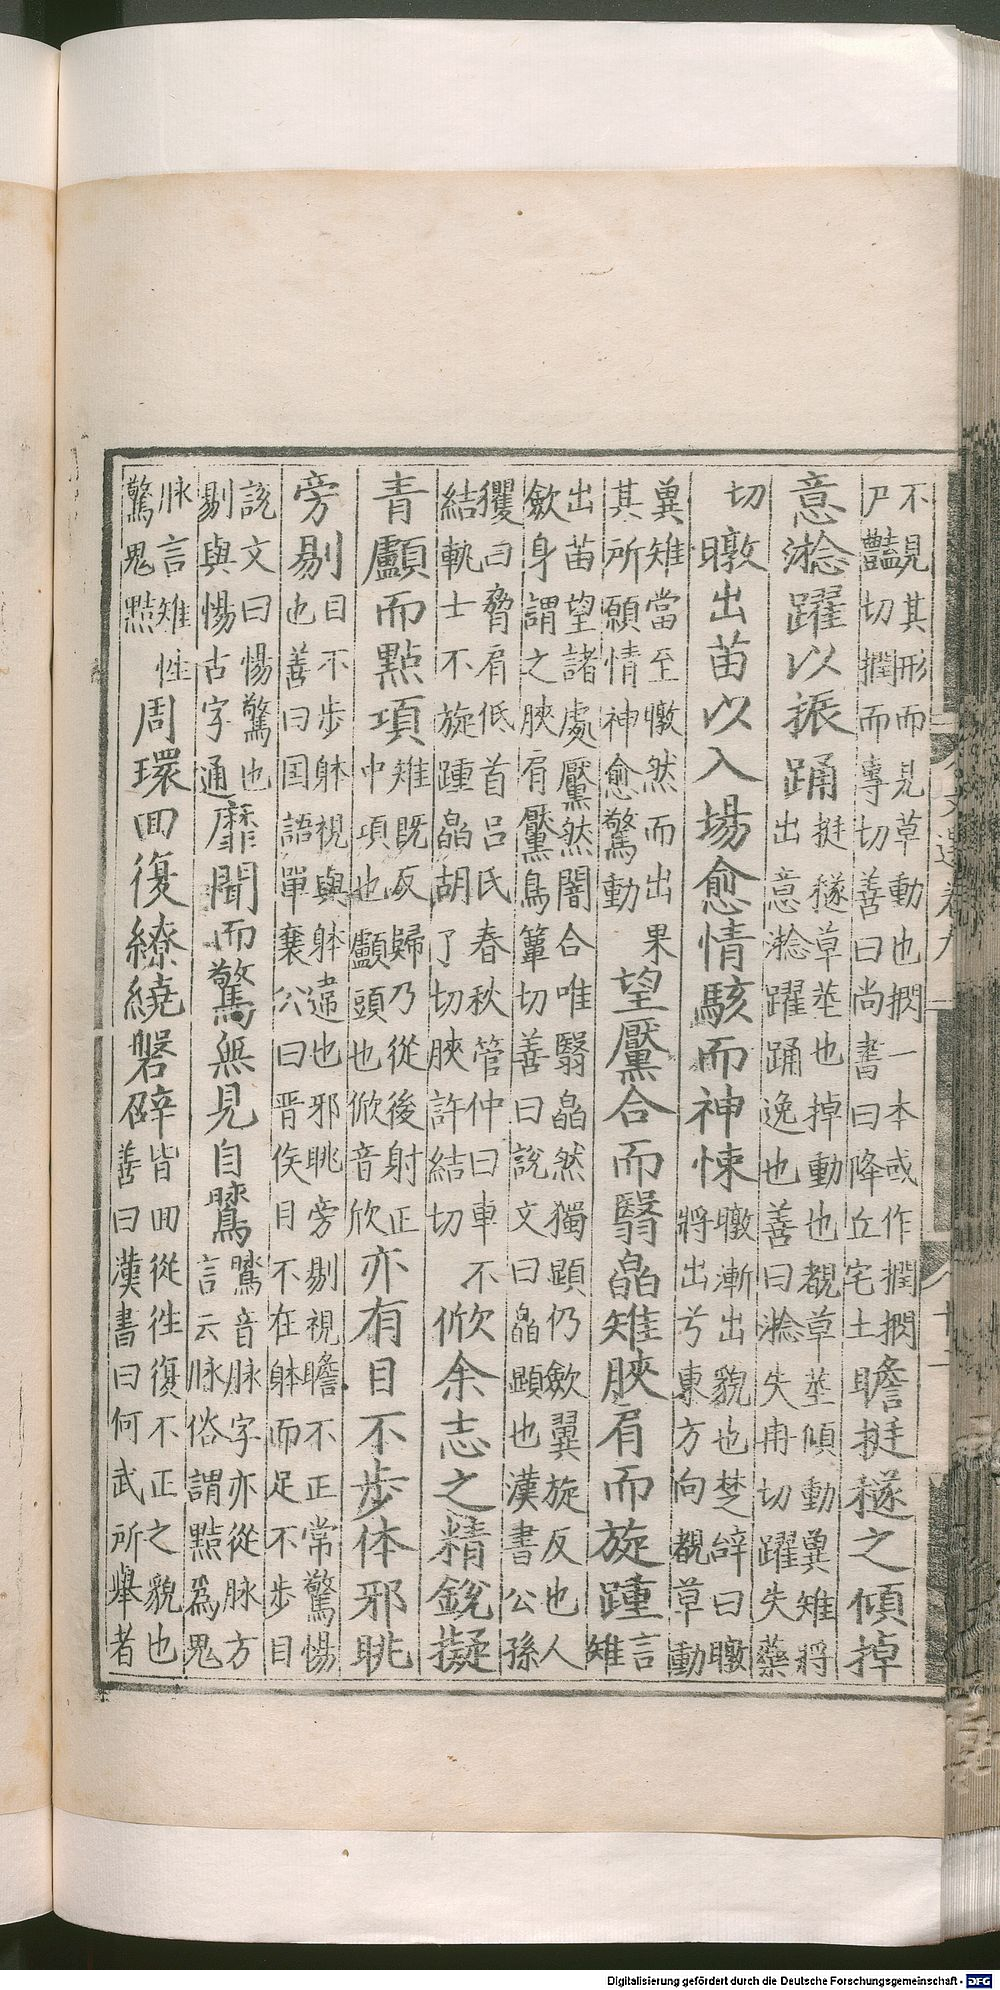 不見其形而見草動也㨛一本或作撋㨛尸豔切撋而專切善曰尚書曰降丘宅土瞻挺穟之傾掉
意淰躍以振踊挺穟草莖也掉動也覩草莖傾動冀雉將出意淰躍踊逸也善曰淰失冉切躍失藥
切暾出苗以入場愈情駭而神悚暾漸出貌也楚辭曰暾將出兮東方向覩草動
冀雉當至暾然而出果其所願情神愈驚動望黶合而翳皛雉脥肩而旋踵言雉
出苗望諸處黶然闇合唯翳皛然獨顯仍斂翼旋反也人斂身謂之脥肩黶烏簟切善曰說文曰皛顯也漢書公孫
玃曰脅肩低首呂氏春秋管仲曰車不結軌士不旋踵皛胡了切脥許結切俽余志之精銳擬
青顱而點項雉既反歸乃從後射正中項也顱頭也俽音欣亦有目不步体邪眺
旁剔目不步躰視與躰違也邪眺旁剔視瞻不正常驚惕也善曰国語單襄公曰晉侯目不在躰而足不步目
說文曰惕驚也剔與惕古字通靡聞而驚無見自音脉字亦從脉方言云脉俗謂黠爲鬼
脉言雉性驚鬼黠周環回復繚繞磐辟皆回從徃復不正之貌也善曰漢書曰何武所舉者
Digitalisierung gefördert durch die Deutsche Forschungsgemeinschaft - DFG